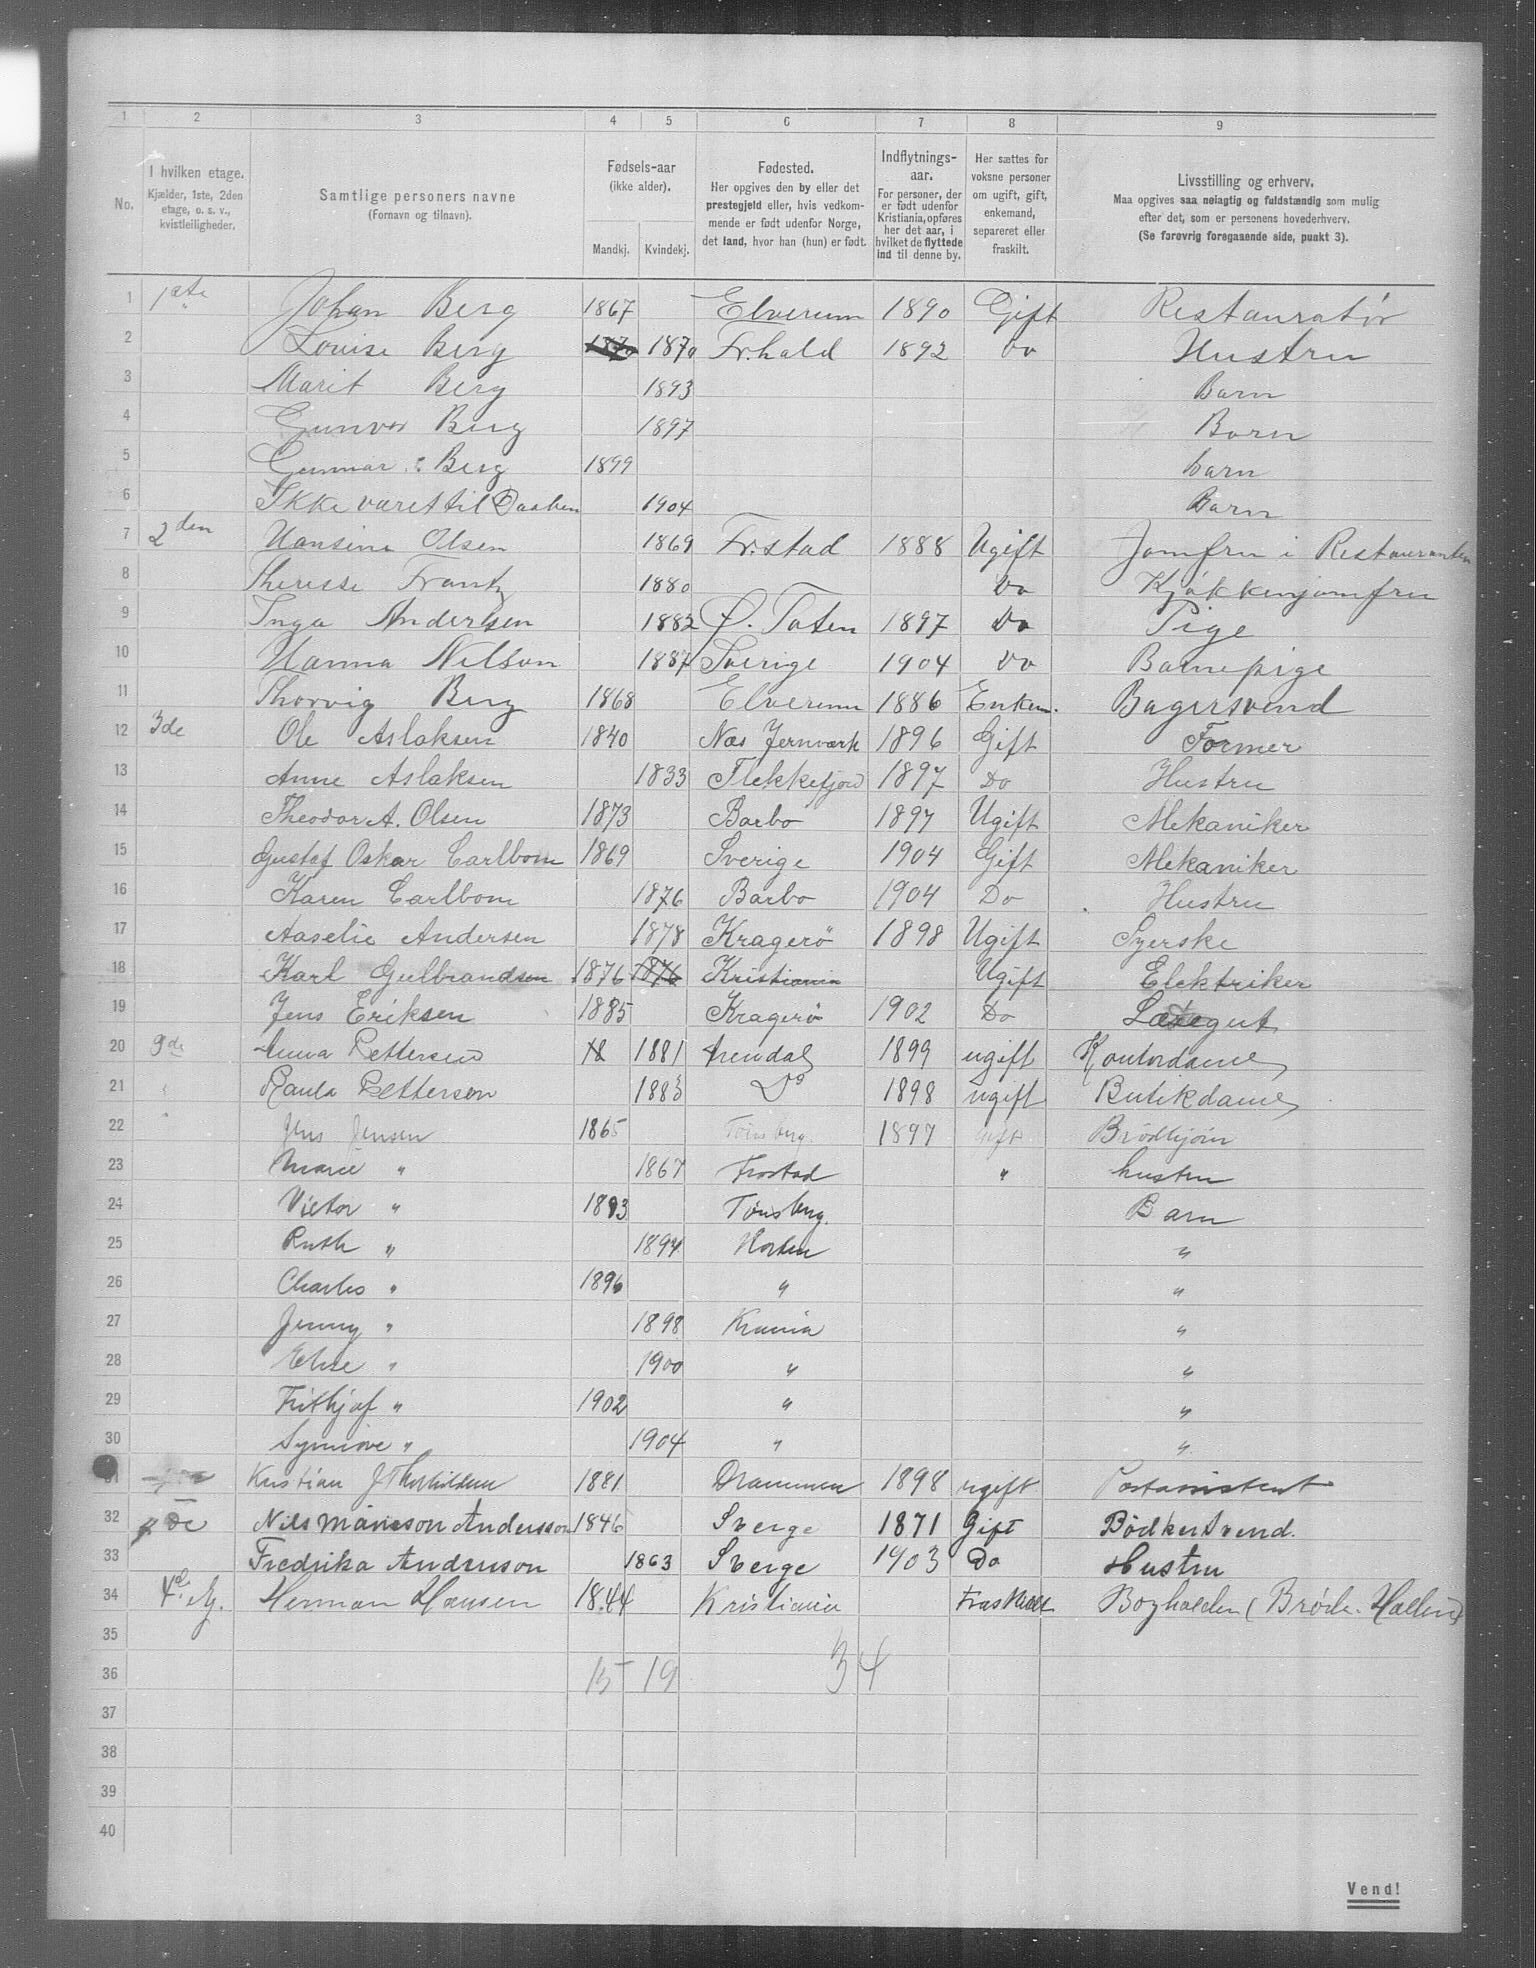 1 2 3 4 5 6 7 8 9
No. I hvilken etage. Kjælder, 1ste, 2den etage, o. s. v., kvistleiligheder. Samtlige personers navne (Fornavn og tilnavn). Fødsels-aar (ikke alder). Mandkj. Kvindekj. Fødested. Her opgives den by eller det prestegjeld eller, hvis vedkommende er født udenfor Norge, det land, hvor han (hun) er født. Indflytnings-aar. For personer, der er født udenfor Kristiania, opføres her det aar, i hvilket de flyttede ind til denne by. Her sættes for voksne personer om ugift, gift, enkemand, separeret eller fraskilt. Livsstilling og erhverv. Maa opgives saa nøiagtig og fuldstændig som mulig efter det, som er personens hovederhverv. (Se forøvrig foregaaende side, punkt 3).
1 1ste Johan Berg 1867 Elverum 1890 Gift Restauratör
2 Louise Berg 1870 1870 Fr.hald 1892 Do Hustru
3 Marit Berg 1893 Barn
4 Gunvor Berg 1897 Barn
5 Gunnar Berg 1899 barn
6 Ikke været til Daaben 1904 Barn
7 2den Hansine Olsen 1869 Fr.stad 1888 Ugift Jomfru i Restauranten
8 Therese Frantz 1880 Do Kjøkkenjomfru
9 Inga Andersen 1882 Ø. Toten 1897 Do Pige
10 Hanna Nilson 1887 Sverige 1904 Do Barnepige
11 Thorvig Berg 1868 Elverum 1886 Enkem. Bagersvend
12 3de Ole Aslaksen 1840 Næs Jernværk 1896 Gift Former
13 Anne Aslaksen 1833 Flekkefjord 1897 Do Hustru
14 Theodor A. Olsen 1873 Barbo 1897 Ugift Mekaniker
15 Gustaf Oskar Carlbom 1869 Sverige 1904 Gift Mekaniker
16 Karen Carlbom 1876 Barbo 1904 Do Hustru
17 Aaselie Andersen 1878 Kragerö 1898 Ugift Syerske
18 Karl Gulbrandsen 1876 1876 Kristiania Ugift Elektriker
19 Jens Eriksen 1885 Kragerö 1902 Do Læregut
20 3de Anna Pettersen 18 1881 Arendal 1899 ugift Kontordame
21 Paula Pettersen 1883 Do 1898 ugift Butikdame
22 Jens Jensen 1865 Tönsberg. 1897 Gift Brödkjörer
23 Marie " 1867 Frostad " hustru
24 Victor " 1893 Tønsberg. Barn
25 Ruth " 1894 Horten "
26 Charles " 1896 " "
27 Jenny " 1898 Krania "
28 Elise " 1900 " "
29 Frithjof " 1902 " "
30 Synnøve " 1904 " "
31 Kristian J Thorkildsen 1881 Drammen 1898 ugift Postassistent
32 4de Nils Månsson Andersson 1846 Sverge 1871 Gift Bødkersvend.
33 Fredrika Andersson 1863 Sverge 1903 Do Hustru
34 Herman Hansen 1844 Kristiania Fraskilt Bogholder (Bröde. Hallen)
35
36 15 19 34
37
38
39
40
Vend!